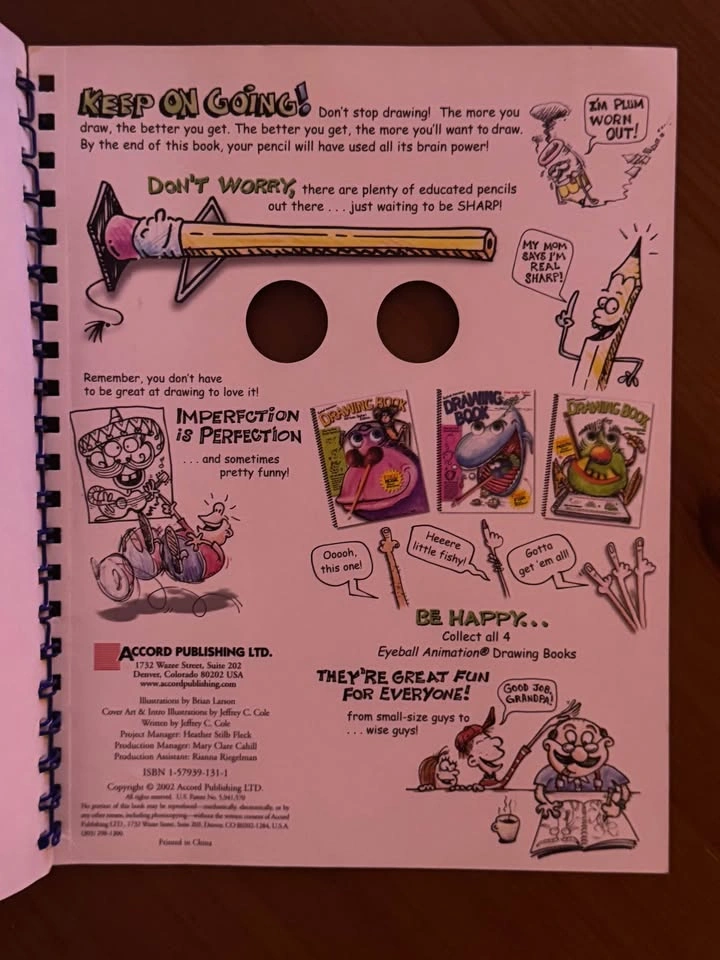 KEEP ON GOING! Don't stop drawing! The more you
draw, the better you get. The better you get, the more you'll want to draw.
By the end of this book, your pencil will have used all its brain power!
I'M PLUM
WORN
OUT!
DON'T WORRY, there are plenty of educated pencils
out there . . . just waiting to be SHARP!
MY MOM
SAYS I'M
REAL
SHARP!
Remember, you don't have
to be great at drawing to love it!
IMPERFCTION
IS PERFECTION
. . . and sometimes
pretty funny!
DRAWING BOOK
DRAWING
BOOK
DRAWING BOOK
Ooooh,
this one!
Heeere
little fishy!
Gotta
get 'em all!
BE HAPPY...
Collect all 4
Eyeball Animation® Drawing Books
ACCORD PUBLISHING LTD.
1732 Wazee Street, Suite 202
Denver, Colorado 80202 USA
www.accordpublishing.com
Illustrations by Brian Larson
Cover Art & Intro Illustrations by Jeffrey C. Cole
Written by Jeffrey C. Cole
Project Manager: Heather Stilb Fleck
Production Manager: Mary Clare Cahill
Production Assistant: Rianna Riegelman
ISBN 1-57939-131-1
Copyright © 2002 Accord Publishing LTD.
All rights reserved. U.S. Patent No. 5,941,570
No portion of this book may be reproduced—mechanically, electronically, or by
any other means, including photocopying—without the written consent of Accord
Publishing LTD., 1732 Wazee Street, Suite 202, Denver, CO 80202-1284, U.S.A.
(303) 298-1300.
Printed in China
THEY'RE GREAT FUN
FOR EVERYONE!
from small-size guys to
. . . wise guys!
GOOD JOB,
GRANDPA!